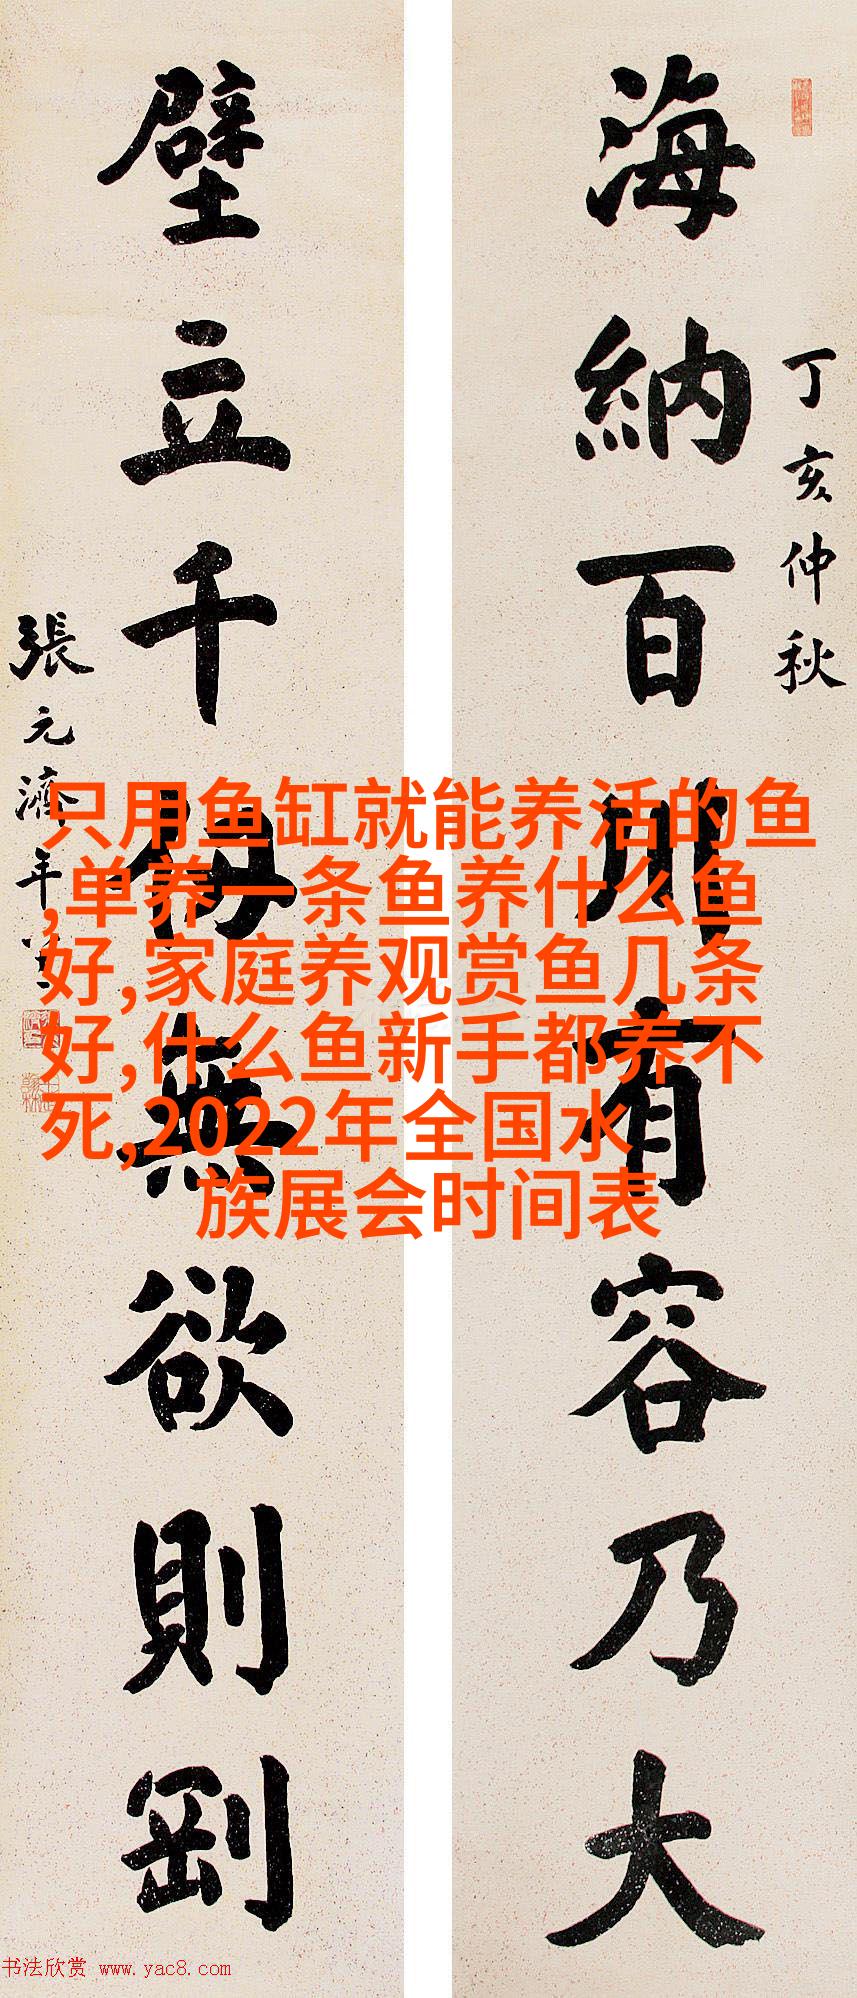 海納百川有容乃大
丁亥仲秋
壁立千仞無欲則剛
張元濟年
只用鱼缸就能养活的鱼
,单养一条鱼养什么鱼
好,家庭养观赏鱼几条
好,什么鱼新手都养不
死,2022年全国水
族展会时间表
书法欣赏 www.yac8.com